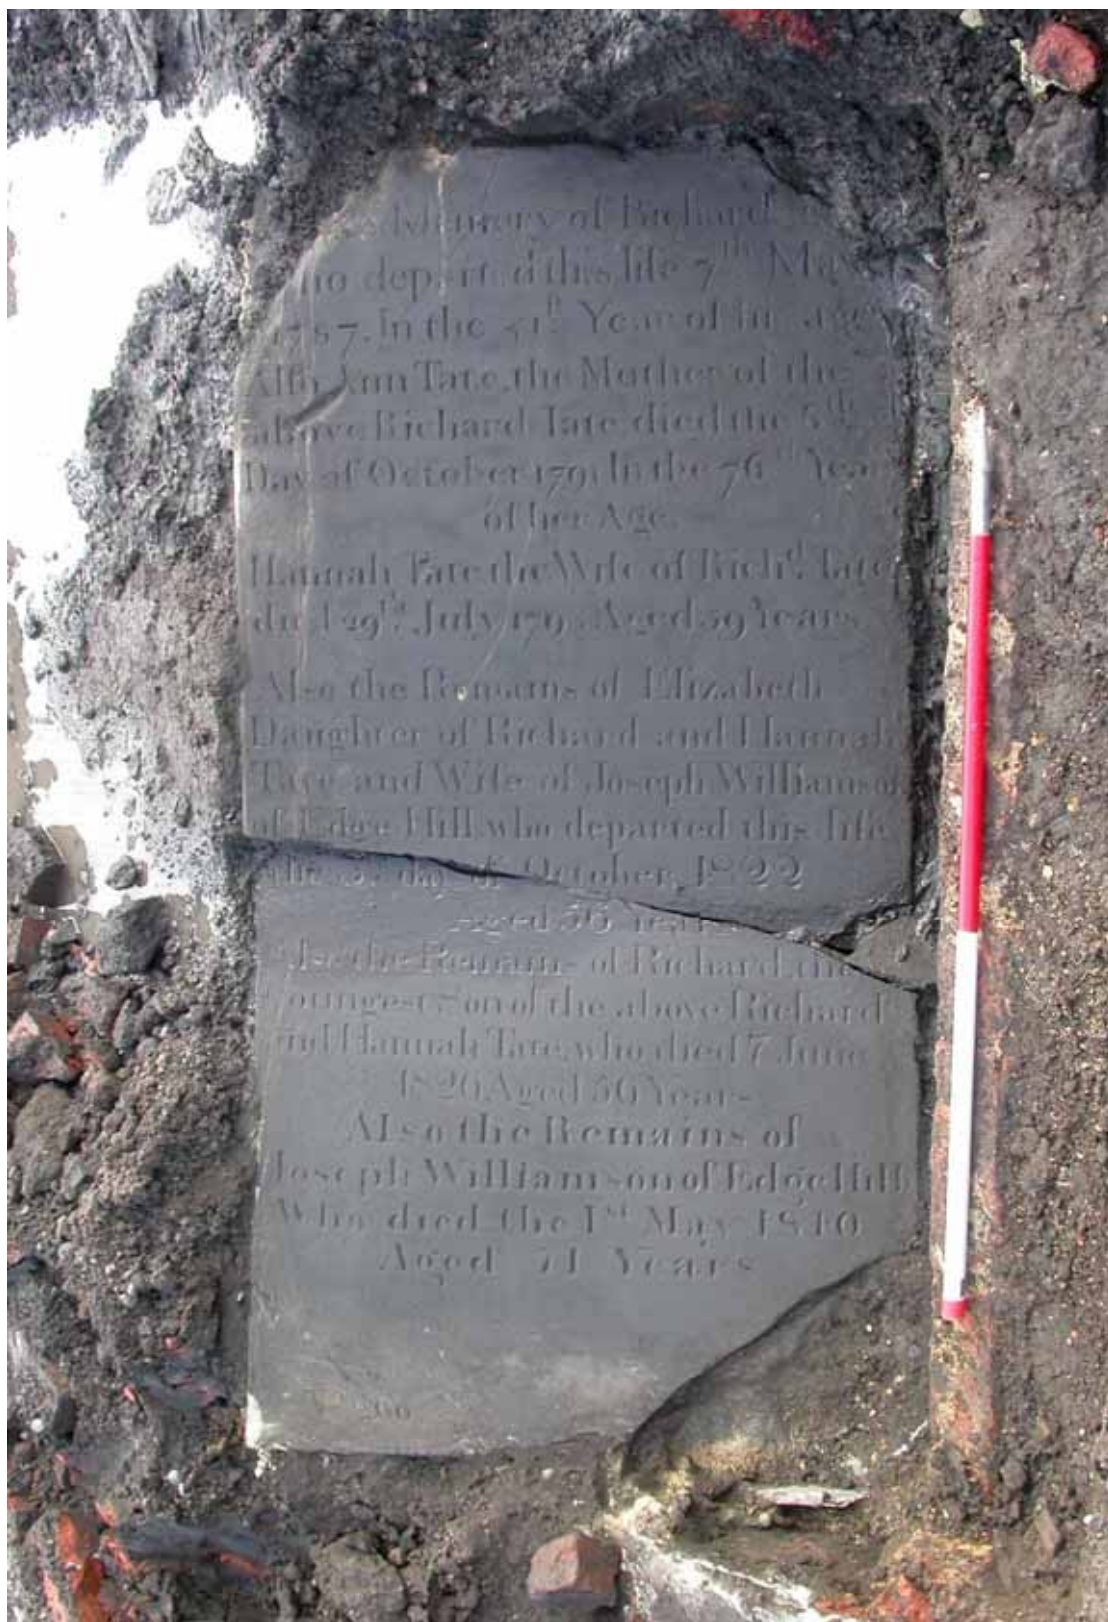 Memory of Richard
who departed this life 7th May
1787. In the 51st Year of his age
Also Ann Tate, the Mother of the
above Richard Tate died the 6th
Day of October 1791 In the 76th Year
of her Age.
Hannah Tate the Wife of Richd. Tate
died 29th. July Aged 59 Years
Also the Remains of Elizabeth
Daughter of Richard and Hannah
Tate and Wife of Joseph Williamson
of Edge Hill who departed this life
the day of October, 1822
Aged 56 Years
Also the Remains of Richard the
youngest Son of the above Richard
and Hannah Tate, who died 7 June
1826 Aged 56 Years
Also the Remains of
Joseph Williamson of Edge Hill
Who died the 1st May 1840
Aged 71 Years